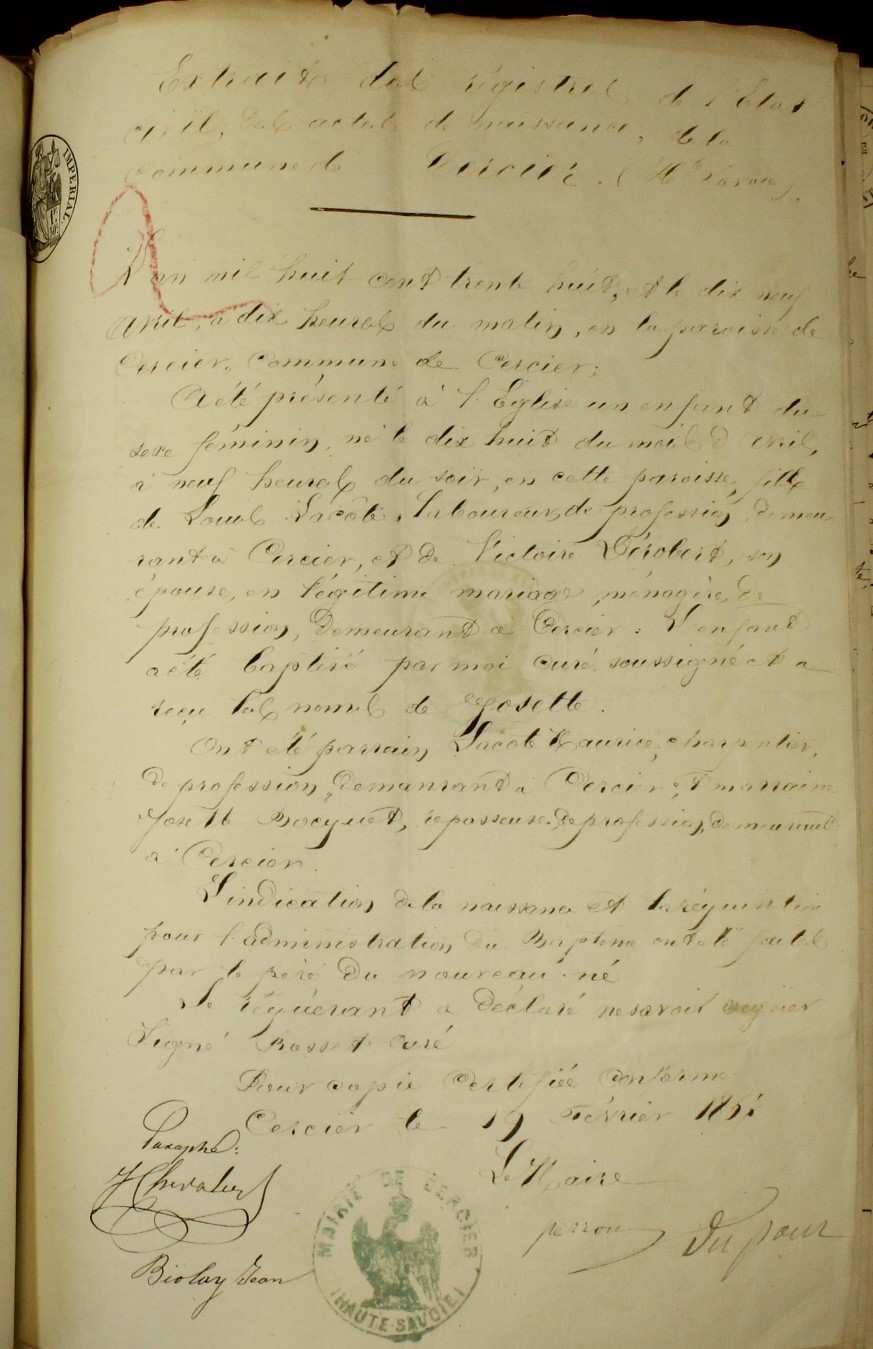 Extraits des régistres de l'Etat
civil, des actes de naissance, de la
Commune de Cercier. (Hte Savoie).
IMPERIAL
L'an mil huit cent trente huit, et le dix neuf
avril, à dix heures du matin, en la paroisse de
Cercier, Commune de Cercier;
A été présenté à l'Eglise un enfant du
sexe féminin, né le dix huit du mois d'avril,
à neuf heures du soir, en cette paroisse, fille
de Louis Lacôte, Laboureur, de profession, demeu-
rant à Cercier, et de Victoire Dérobert, son
épouse, en légitime mariage, ménagère, de
profession, demeurant à Cercier: L'enfant
a été baptisé par moi curé soussigné et a
reçu les noms de Josette.
Ont été parrain, Lacôte Maurice, charpentier,
de profession, demeurant à Cercier et marraine
Josette Bocquet, repasseuse, de profession, demeurant
à Cercier.
L'indication de la naissance et la réquisition
pour l'administration du Baptême ont été faites
par le père du nouveau-né
Le réquérant a déclaré ne savoir signer
Signé Basset curé
Pour copie Certifiée conforme
Cercier le 19 Février
Le Maire
Paraphé:
J Chevalier
MAIRIE DE CERCIER
(HAUTE-SAVOIE)
Biolay Jean
Dupour